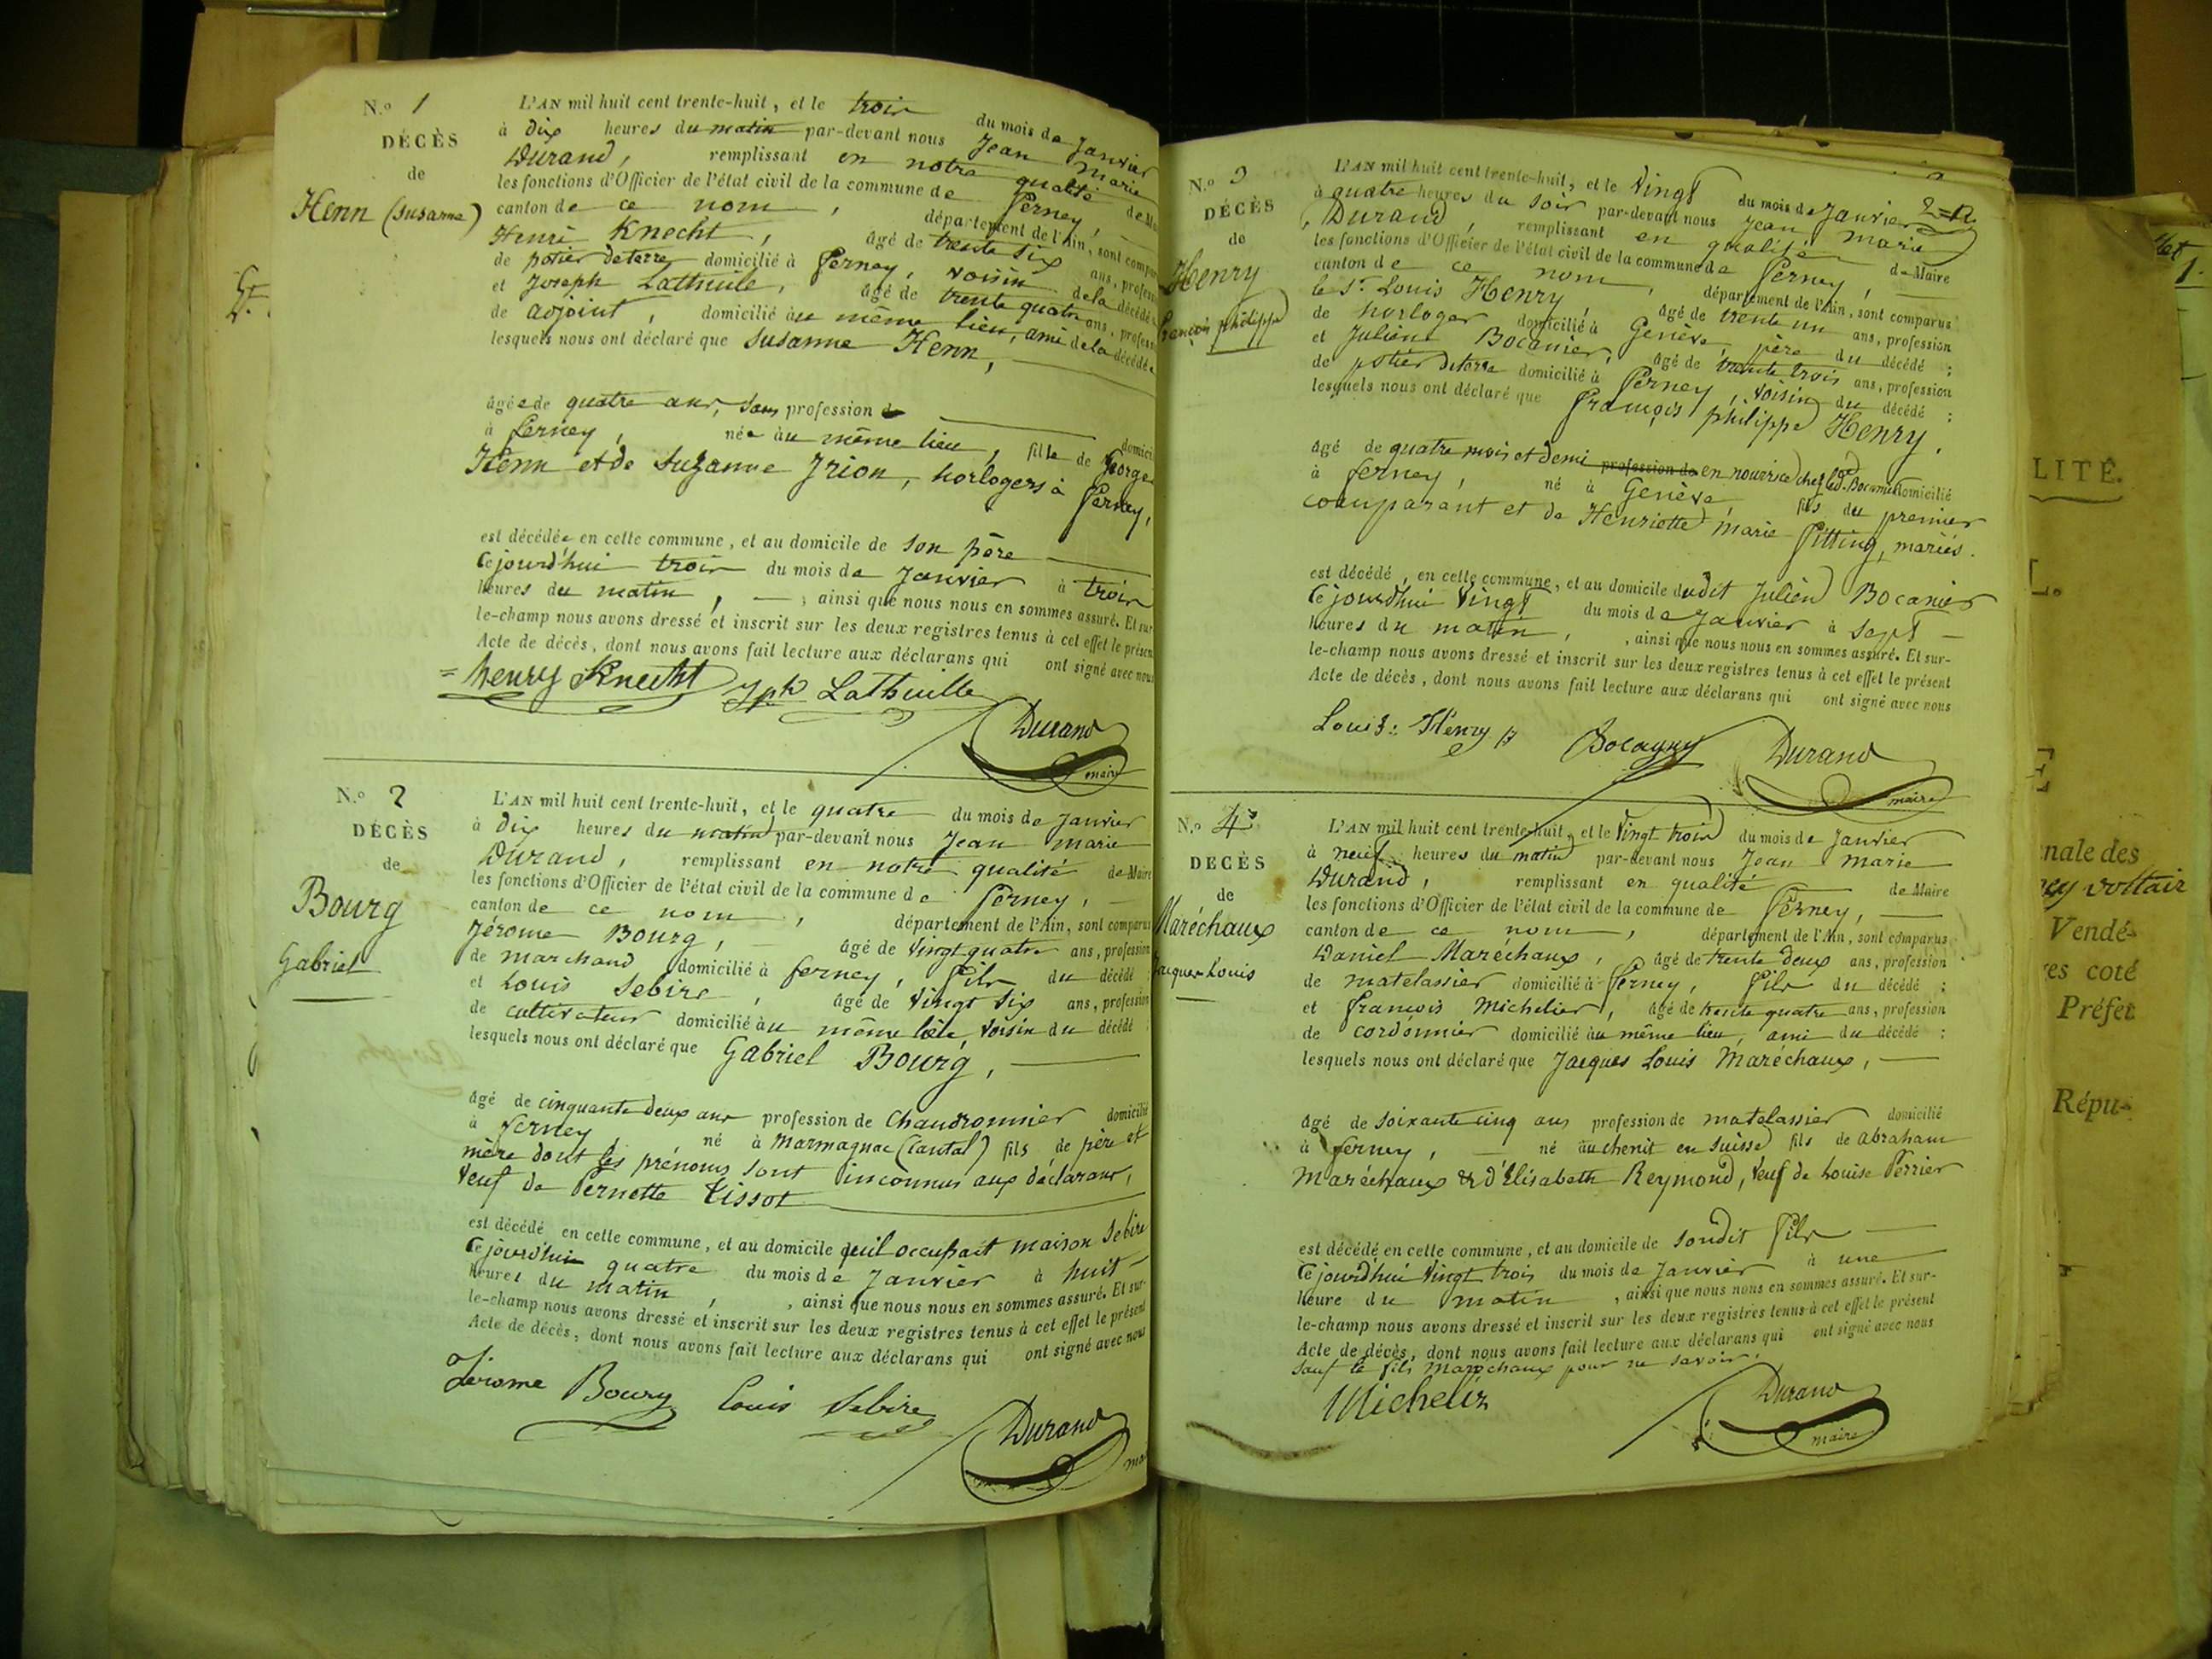 N.o 1
DÉCÈS
de
Henn (Susanne)
L'AN mil huit cent trente-huit, et le trois du mois de Janvier
à dix heures du matin par-devant nous Jean Marie
Durand, remplissant en notre qualité de Maire
les fonctions d'Officier de l'état civil de la commune de Ferney,
canton de ce nom, département de l'Ain, sont comparus
Henri Knecht, âgé de trente six ans, profession
de potier de terre domicilié à Ferney, voisin de la décédée
et Joseph Lathuile, âgé de trente quatre ans, profession
de adjoint, domicilié au même lieu, ami de la décédée
lesquels nous ont déclaré que Susanne Henn,
âgée de quatre ans, sans profession de domici
à ferney, née au même lieu, fille de George
Henn et de Suzanne Irion, horlogers à Ferney,
est décédée en cette commune, et au domicile de son père
Cejourd'hui trois du mois de Janvier à trois
heures du matin, ; ainsi que nous nous en sommes assuré. Et sur
le-champ nous avons dressé et inscrit sur les deux registres tenus à cet effet le présent
Acte de décès, dont nous avons fait lecture aux déclarans qui ont signé avec nous
henry Knecht Jph Lathuille
Durand
maire
N.o 2
DÉCÈS
de
Bourg
Gabriel
L'AN mil huit cent trente-huit, et le quatre du mois de Janvier
à dix heures du matin par-devant nous Jean Marie
Durand, remplissant en notre qualité de Maire
les fonctions d'Officier de l'état civil de la commune de Ferney,
canton de ce nom, département de l'Ain, sont comparus
Jérome Bourg, âgé de Vingt quatre ans, profession
de marchand domicilié à ferney, fils du décédé
et Louis Sebire, âgé de Vingt six ans, profession
de cultivateur domicilié au même lieu, Voisin du décédé
lesquels nous ont déclaré que Gabriel Bourg,
âgé de cinquante deux ans profession de Chaudronnier domicilié
à ferney né à Marmagnac (Cantal) fils de père et
mère dont les prénoms sont inconnus aux déclarans,
Veuf de Pernette Tissot
est décédé en cette commune, et au domicile qu'il occupait maison Sebire
Cejourd'hui quatre du mois de Janvier à huit
heures du matin, , ainsi que nous nous en sommes assuré. Et sur-
le-champ nous avons dressé et inscrit sur les deux registres tenus à cet effet le présent
Acte de décès, dont nous avons fait lecture aux déclarans qui ont signé avec nous
Jérome Bourg Louis Sebire
Durand
N.o 3
DÉCÈS
de
Henry
françois philippe
L'AN mil huit cent trente-huit, et le Vingt du mois de Janvier
à quatre heures du soir par-devant nous Jean Marie
Durand, remplissant en qualité de Maire
les fonctions d'Officier de l'état civil de la commune de Ferney,
canton de ce nom, département de l'Ain, sont comparus
le Sr. Louis Henry, âgé de trente un ans, profession
de horloger domicilié à Genève, père du décédé ;
et Julien Bocanier, âgé de trente trois ans, profession
de potier de terre domicilié à Ferney, voisin du décédé :
lesquels nous ont déclaré que françois philippe Henry,
âgé de quatre mois et demi profession de en nourrice chez led. Bocanier domicilié
à ferney, né à Genève, fils du premier
comparant et de Henriette Marie Pitting, mariés.
est décédé, en cette commune, et au domicile dudit Julien Bocanier
Cejourd'hui Vingt du mois de Janvier à Sept
heures du matin, , ainsi que nous nous en sommes assuré. Et sur-
le-champ nous avons dressé et inscrit sur les deux registres tenus à cet effet le présent
Acte de décès, dont nous avons fait lecture aux déclarans qui ont signé avec nous
Louis: Henry Durand
maire
N.o 4
DECÈS
de
Maréchaux
Jacques Louis
L'AN mil huit cent trente-huit, et le Vingt trois du mois de Janvier
à neuf heures du matin par-devant nous Jean Marie
Durand, remplissant en qualité de Maire
les fonctions d'Officier de l'état civil de la commune de Ferney,
canton de ce nom, département de l'Ain, sont comparus
Daniel Maréchaux, âgé de trente deux ans, profession
de matelassier domicilié à Ferney, fils du décédé ;
et françois Michelier, âgé de trente quatre ans, profession
de cordonnier domicilié au même lieu, ami du décédé :
lesquels nous ont déclaré que Jacques Louis Maréchaux,
âgé de soixante cinq ans profession de matelassier domicilié
à ferney, né au chenit en Suisse fils de Abraham
Maréchaux & d'Elisabeth Reymond, Veuf de Louise Perrier
est décédé en cette commune, et au domicile de sondit fils
Cejourd'hui Vingt trois du mois de Janvier à une
heure du matin , ainsi que nous nous en sommes assuré. Et sur-
le-champ nous avons dressé et inscrit sur les deux registres tenus à cet effet le présent
Acte de décès, dont nous avons fait lecture aux déclarans qui ont signé avec nous
sauf le fils Maréchaux pour ne savoir.
Durand
maire
LITÉ.
nale des
voltair
Vendé-
res coté
Préfet
Répu-